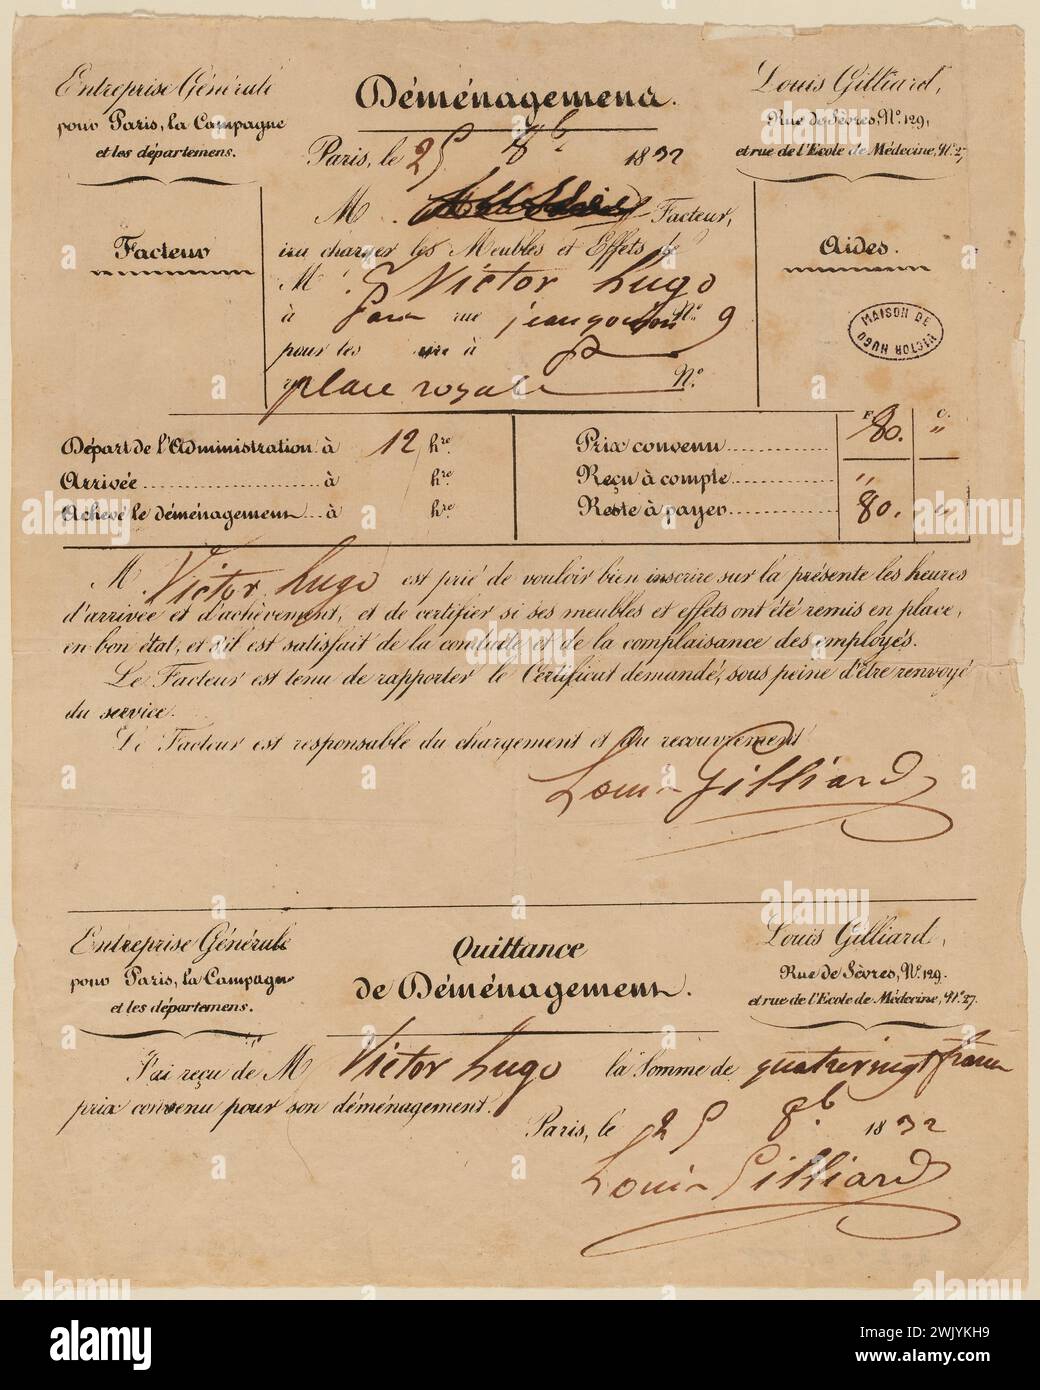 Entreprise Générale
pour Paris, la Campagne
et les départemens.
Déménagement.
Louis Gilliard,
Rue de Sèvres, N°. 129,
et rue de l'Ecole de Médecine, N°. 27
Paris, le 25 8b. 1832
M. Facteur,
ira charger les Meubles et Effets de
M. Victor hugo
à Paris rue jean goujon N°. 9
pour les à
place royale N°.
Facteur
Aides.
MAISON DE VICTOR HUGO
Départ de l'Administration à 12 hre.
Arrivée ........ à hre.
Achevé le déménagement ... à hre.
F. C.
Prix convenu ........ 80. "
Reçu à compte ........ "
Reste à payer ........ 80. "
M. Victor hugo est prié de vouloir bien inscrire sur la présente les heures
d'arrivée et d'achèvement, et de certifier si ses meubles et effets ont été remis en place,
en bon état, et s'il est satisfait de la conduite et de la complaisance des employés.
Le Facteur est tenu de rapporter le Certificat demandé, sous peine d'être renvoyé
du service.
Le Facteur est responsable du chargement et du recouvrement
Louis Gilliard
Entreprise Générale
pour Paris, la Campagne
et les départemens.
Quittance
de Déménagement.
Louis Gilliard,
Rue de Sèvres, N°. 129.
et rue de l'Ecole de Médecine, N°. 27.
J'ai reçu de M Victor hugo la Somme de quatrevingt francs
prix convenu pour son déménagement.
Paris, le 25 8b. 1832
Louis Gilliard
alamy
a
alamy
Image ID: 2WJYKH9
www.alamy.com